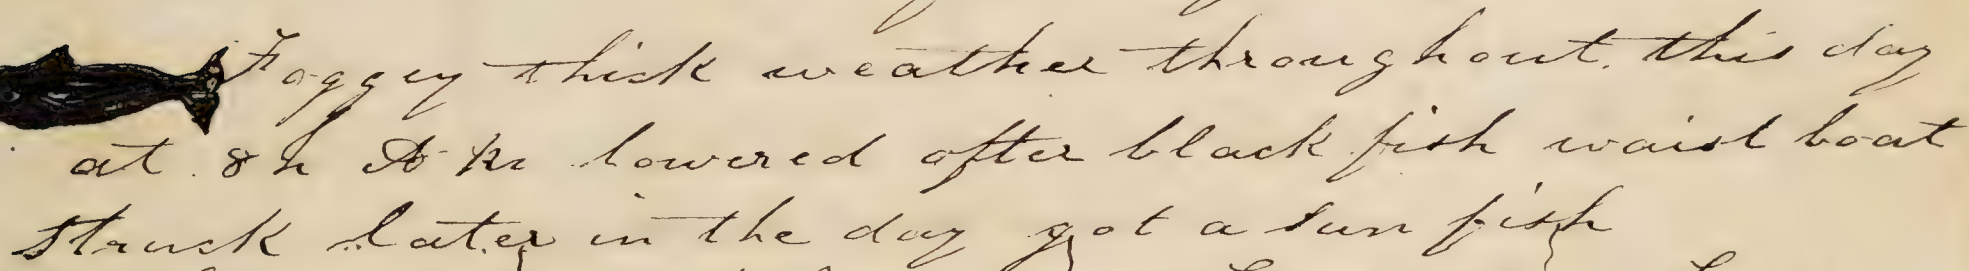 Foggey thick weather throughout. this day
at 8h A M lowered after black fish waist boat
struck later in the day got a sun fish